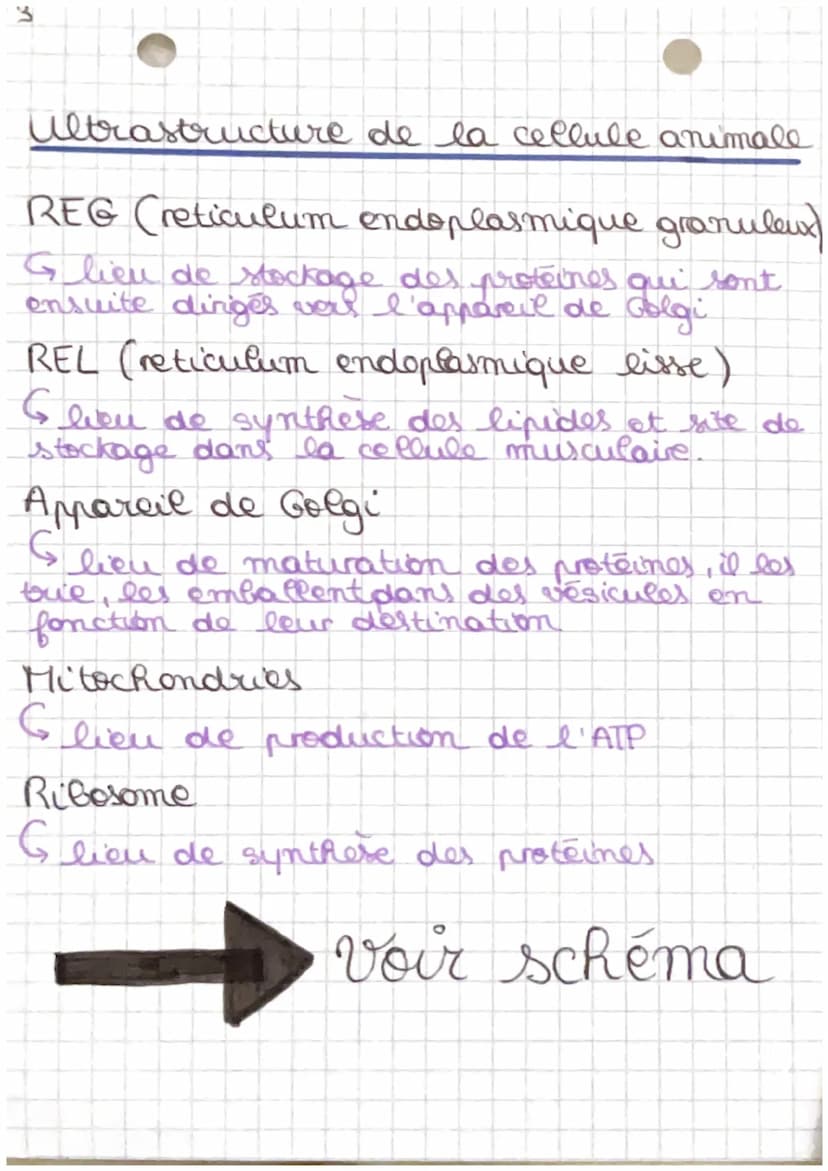 3
Ultrastructure de la cellule animale
REG (reticulum endoplasmique granuleux)
↳ lieu de stockage des protéines qui sont
ensuite dirigés vers l'appareil de Golgi
REL (reticulum endoplasmique lisse)
↳ lieu de synthèse des lipides et site de
stockage dans la cellule musculaire.
Appareil de Golgi
↳ lieu de maturation des protéines, il les
trie, les emballent dans des vésicules en
fonction de leur destination
Mitochondries
↳ lieu de production de l'ATP
Ribosome
↳ lieu de synthèse des protéines
Voir schéma